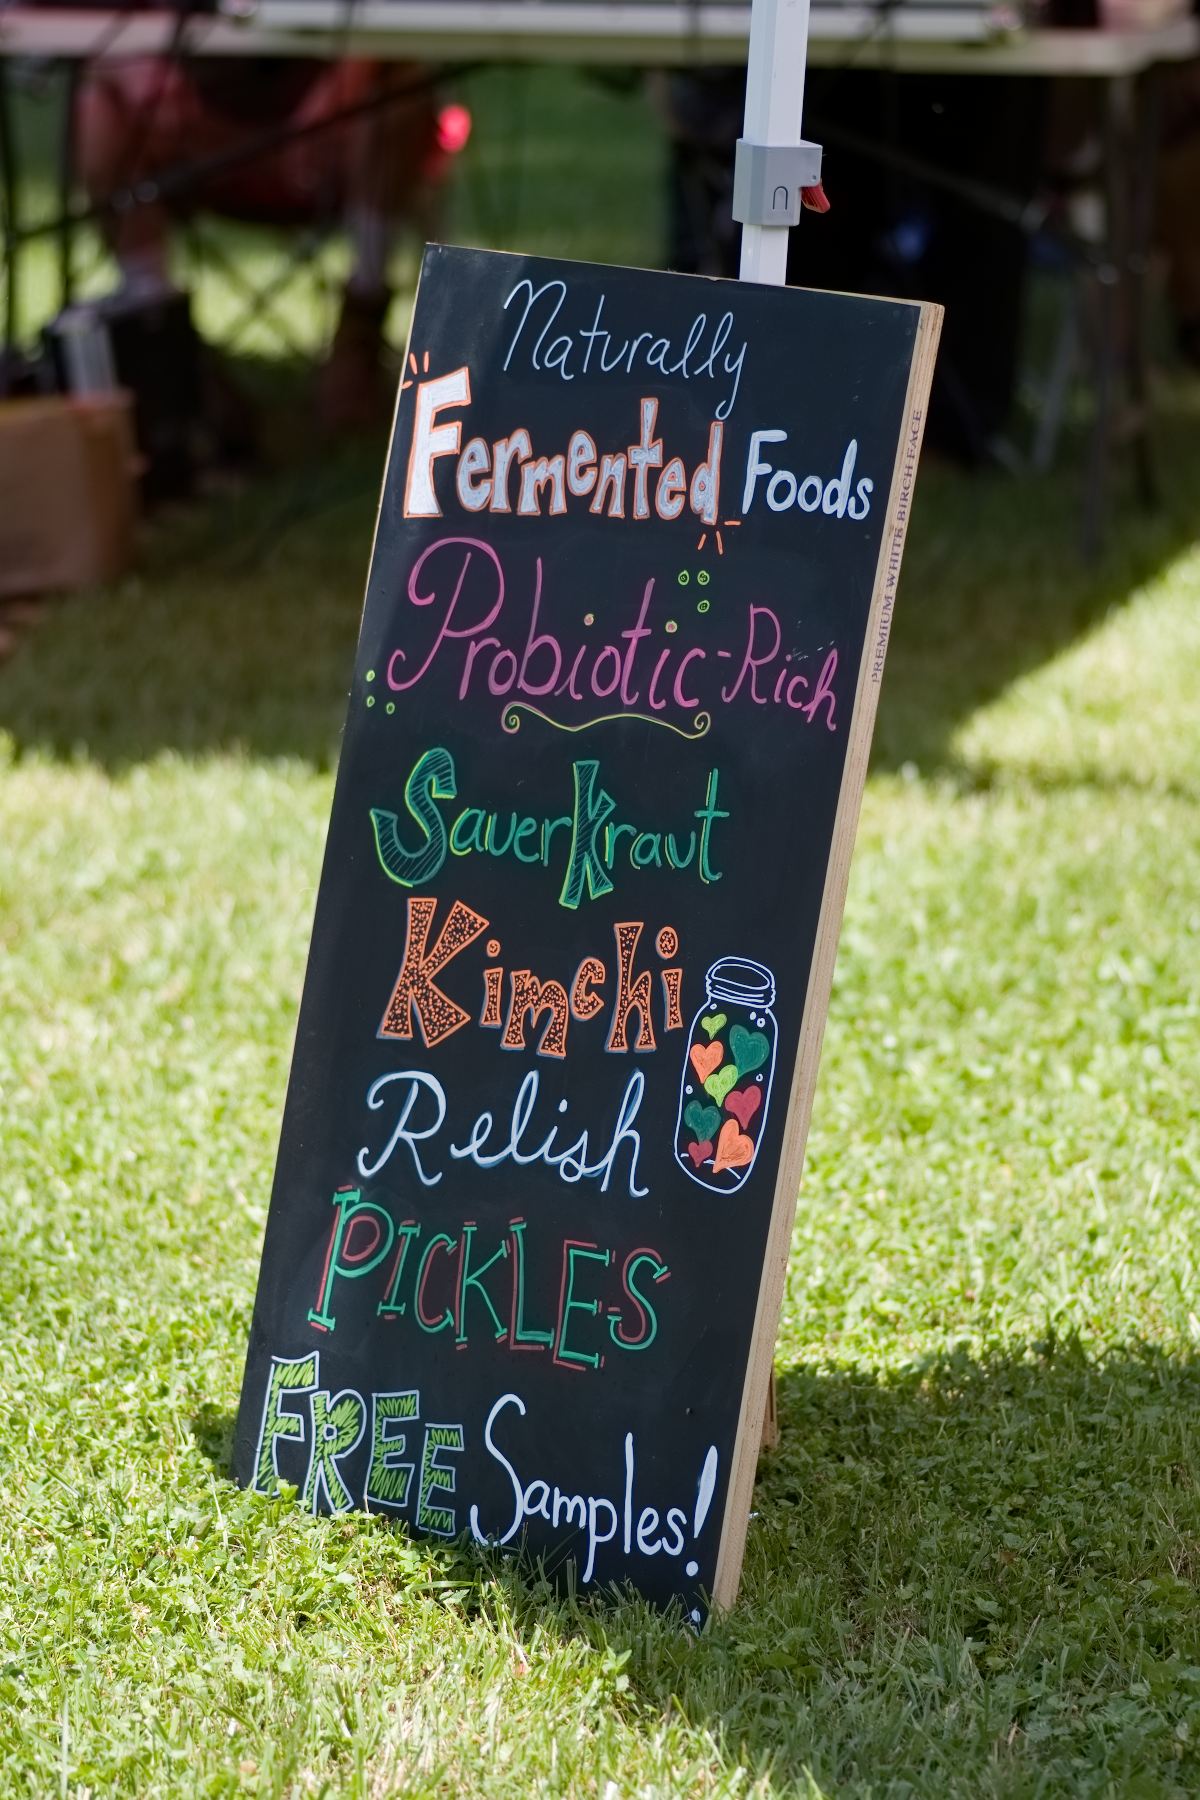 Naturally
Fermented Foods
Probiotic-Rich
Sauerkraut
Kimchi
Relish
PICKLES
FREE Samples!
PREMIUM WHITE BIRCH FACE